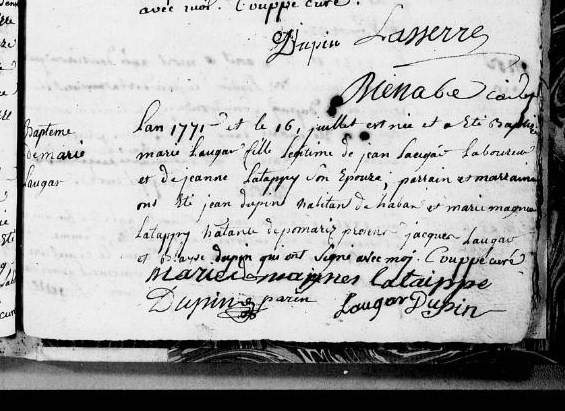 avec moi. Couppé curé.
Dupin Lasserre
Menabe
Bapteme
de marie
Laugar
Lan 1771 et le 16 juillet est née et a Eté Baptisée
marie Laugar fille legitime de jean Laugar Laboureur
et de jeanne Latappy son Epouze, parrain et marraine
ont Eté jean dupin habitan de habas et marie magne
Latappy habante de pomarez presens jacques Laugar
et dupin qui ont signé avec moi. Couppé curé
Marie magnes Lataippe
Dupin parin Laugar Dupin